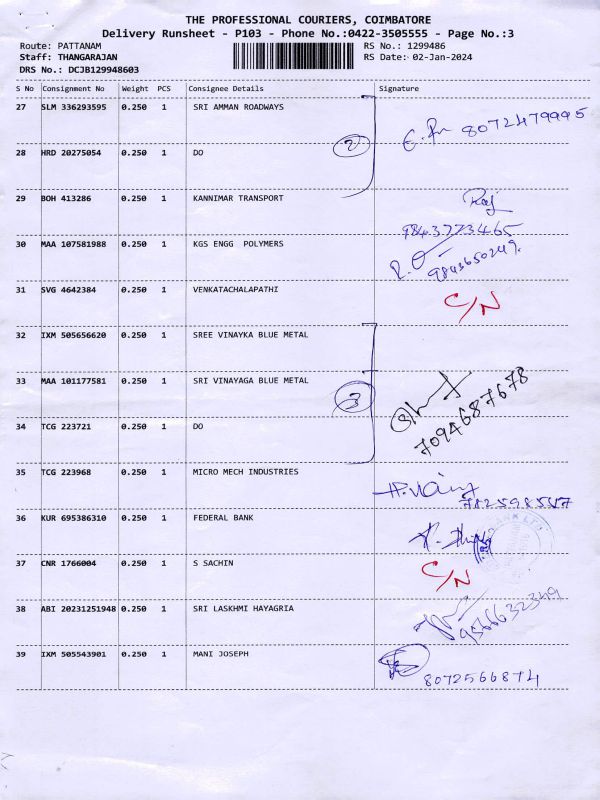 THE PROFESSIONAL COURIERS, COIMBATORE
Delivery Runsheet - P103 - Phone No.:0422-3505555 - Page No.:3
Route: PATTANAM RS No.: 1299486
Staff: THANGARAJAN RS Date: 02-Jan-2024
DRS No.: DCJB129948603
S No Consignment No Weight PCS Consignee Details Signature
27 SLM 336293595 0.250 1 SRI AMMAN ROADWAYS
8072479995
2
28 HRD 20275054 0.250 1 DO
29 BOH 413286 0.250 1 KANNIMAR TRANSPORT Raj
9843773465
30 MAA 107581988 0.250 1 KGS ENGG POLYMERS
9843650249.
31 SVG 4642384 0.250 1 VENKATACHALAPATHI C/N
32 IXM 505656620 0.250 1 SREE VINAYKA BLUE METAL
33 MAA 101177581 0.250 1 SRI VINAYAGA BLUE METAL
3
7094687678
34 TCG 223721 0.250 1 DO
35 TCG 223968 0.250 1 MICRO MECH INDUSTRIES
36 KUR 695386310 0.250 1 FEDERAL BANK
37 CNR 1766004 0.250 1 S SACHIN C/N
38 ABI 20231251948 0.250 1 SRI LASKHMI HAYAGRIA
9566632349
39 IXM 505543901 0.250 1 MANI JOSEPH
8072566874